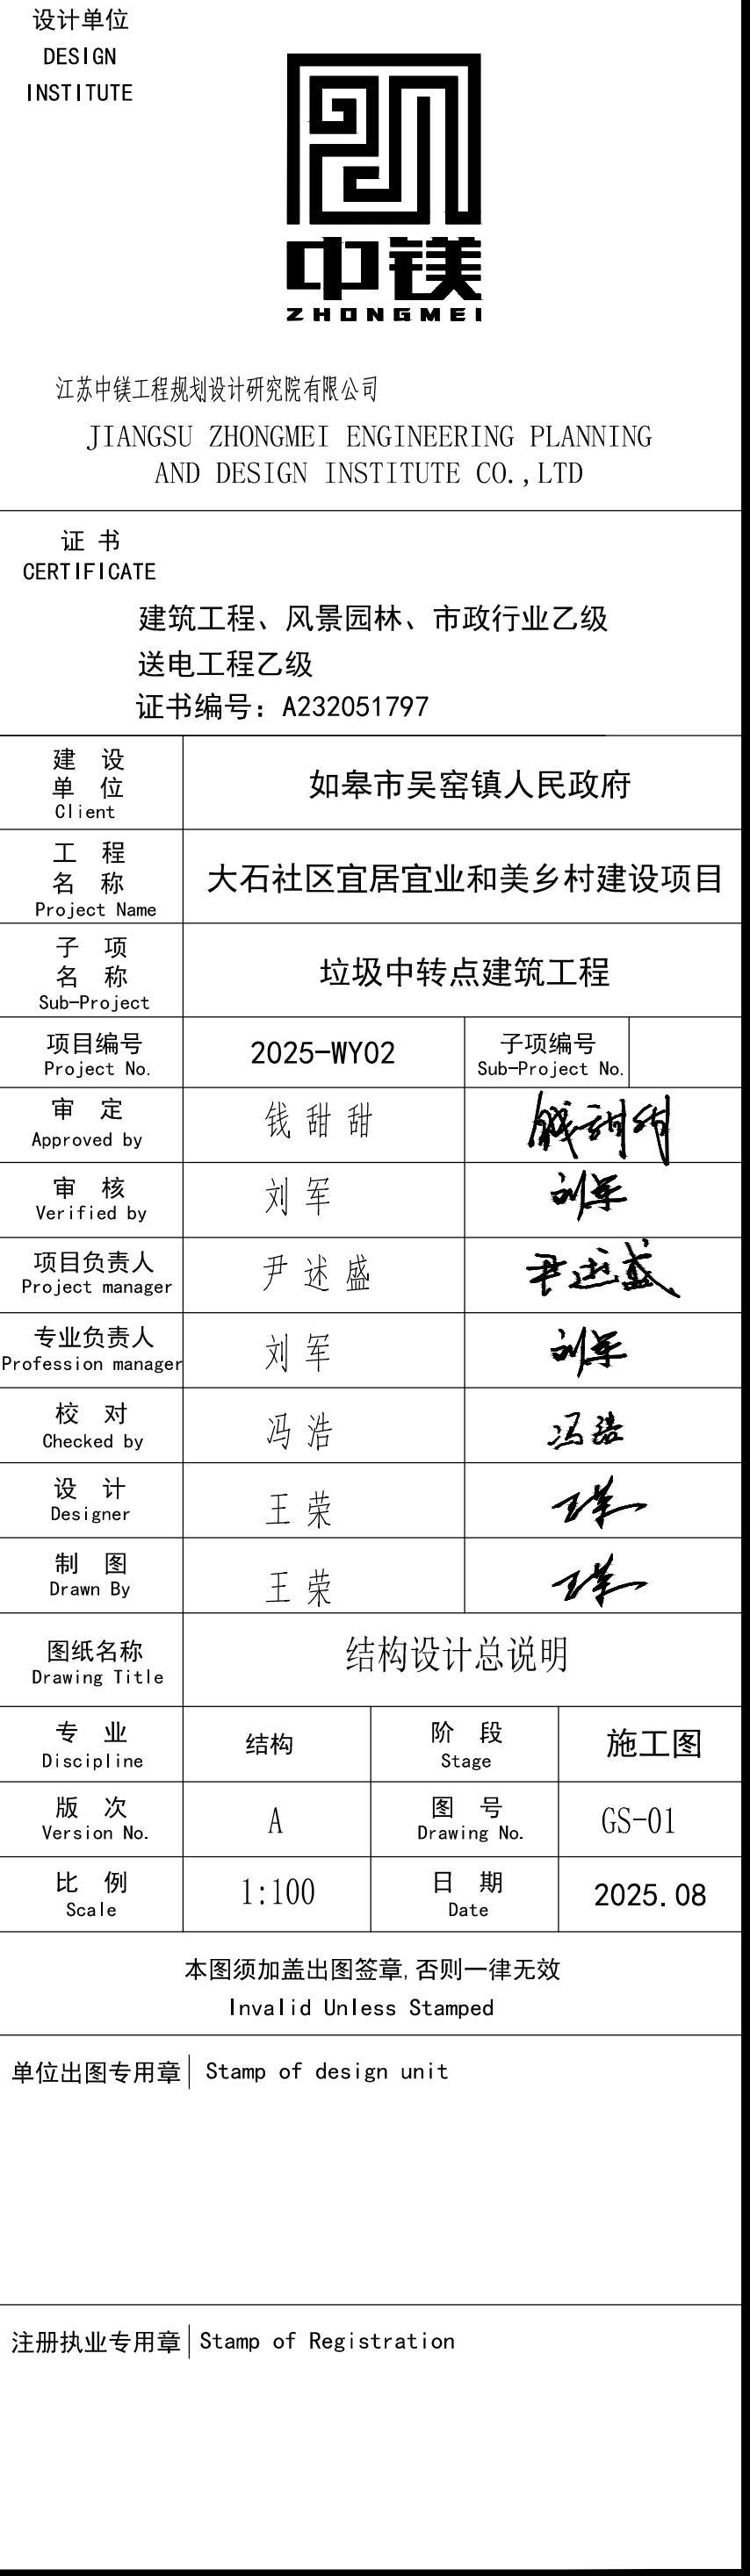 设计单位
DESIGN
INSTITUTE
中镁
ZHONGMEI
江苏中镁工程规划设计研究院有限公司
JIANGSU ZHONGMEI ENGINEERING PLANNING
AND DESIGN INSTITUTE CO.,LTD
证 书
CERTIFICATE
建筑工程、风景园林、市政行业乙级
送电工程乙级
证书编号：A232051797
建 设
单 位
Client
如皋市吴窑镇人民政府
工 程
名 称
Project Name
大石社区宜居宜业和美乡村建设项目
子 项
名 称
Sub-Project
垃圾中转点建筑工程
项目编号
Project No.
2025-WY02
子项编号
Sub-Project No.
审 定
Approved by
钱 甜 甜
钱甜甜
审 核
Verified by
刘 军
刘军
项目负责人
Project manager
尹 述 盛
尹述盛
专业负责人
Profession manager
刘 军
刘军
校 对
Checked by
冯 浩
冯浩
设 计
Designer
王 荣
王荣
制 图
Drawn By
王 荣
王荣
图纸名称
Drawing Title
结构设计总说明
专 业
Discipline
结构
阶 段
Stage
施工图
版 次
Version No.
A
图 号
Drawing No.
GS-01
比 例
Scale
1:100
日 期
Date
2025.08
本图须加盖出图签章,否则一律无效
Invalid Unless Stamped
单位出图专用章 Stamp of design unit
注册执业专用章 Stamp of Registration